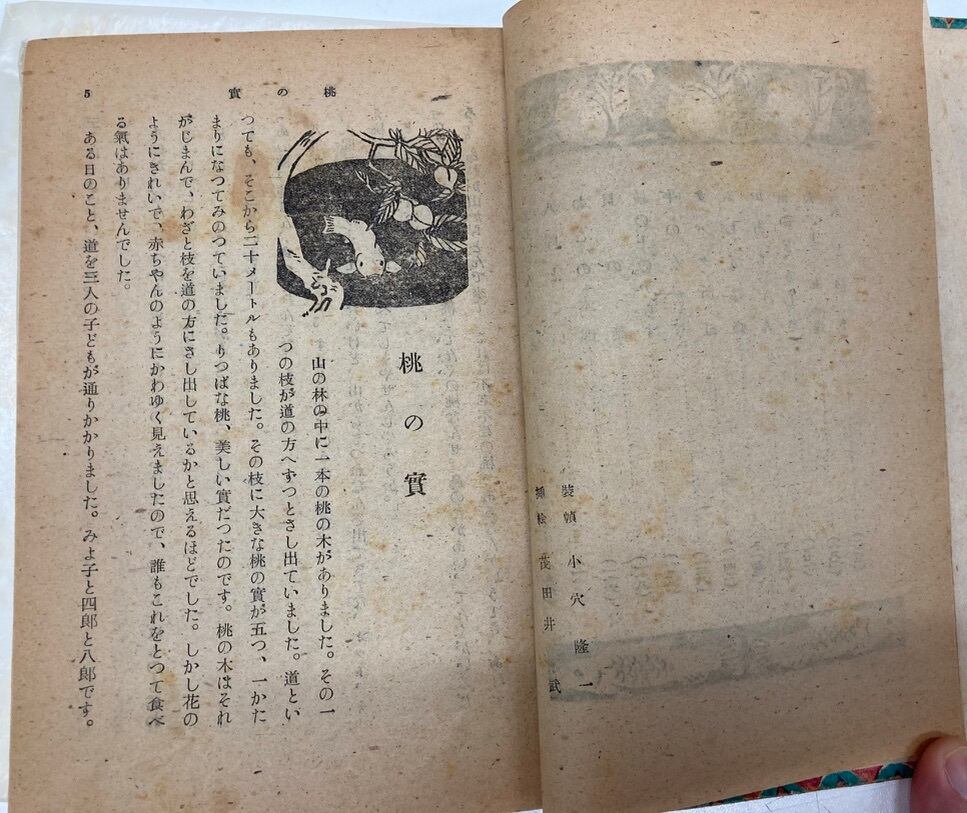 裝幀 小穴隆一
揷絵 茂田井武
桃の實
5
桃の實
山の林の中に一本の桃の木がありました。その一
つの枝が道の方へずつとさし出ていました。道とい
つても、そこから二十メートルもありました。その枝に大きな桃の實が五つ、一かた
まりになつてみのつていました。りつぱな桃、美しい實だつたのです。桃の木はそれ
がじまんで、わざと枝を道の方にさし出しているかと思えるほどでした。しかし花の
ようにきれいで、赤ちやんのようにかわゆく見えましたので、誰もこれをとつて食べ
る氣はありませんでした。
ある日のこと、道を三人の子どもが通りかかりました。みよ子と四郎と八郎です。